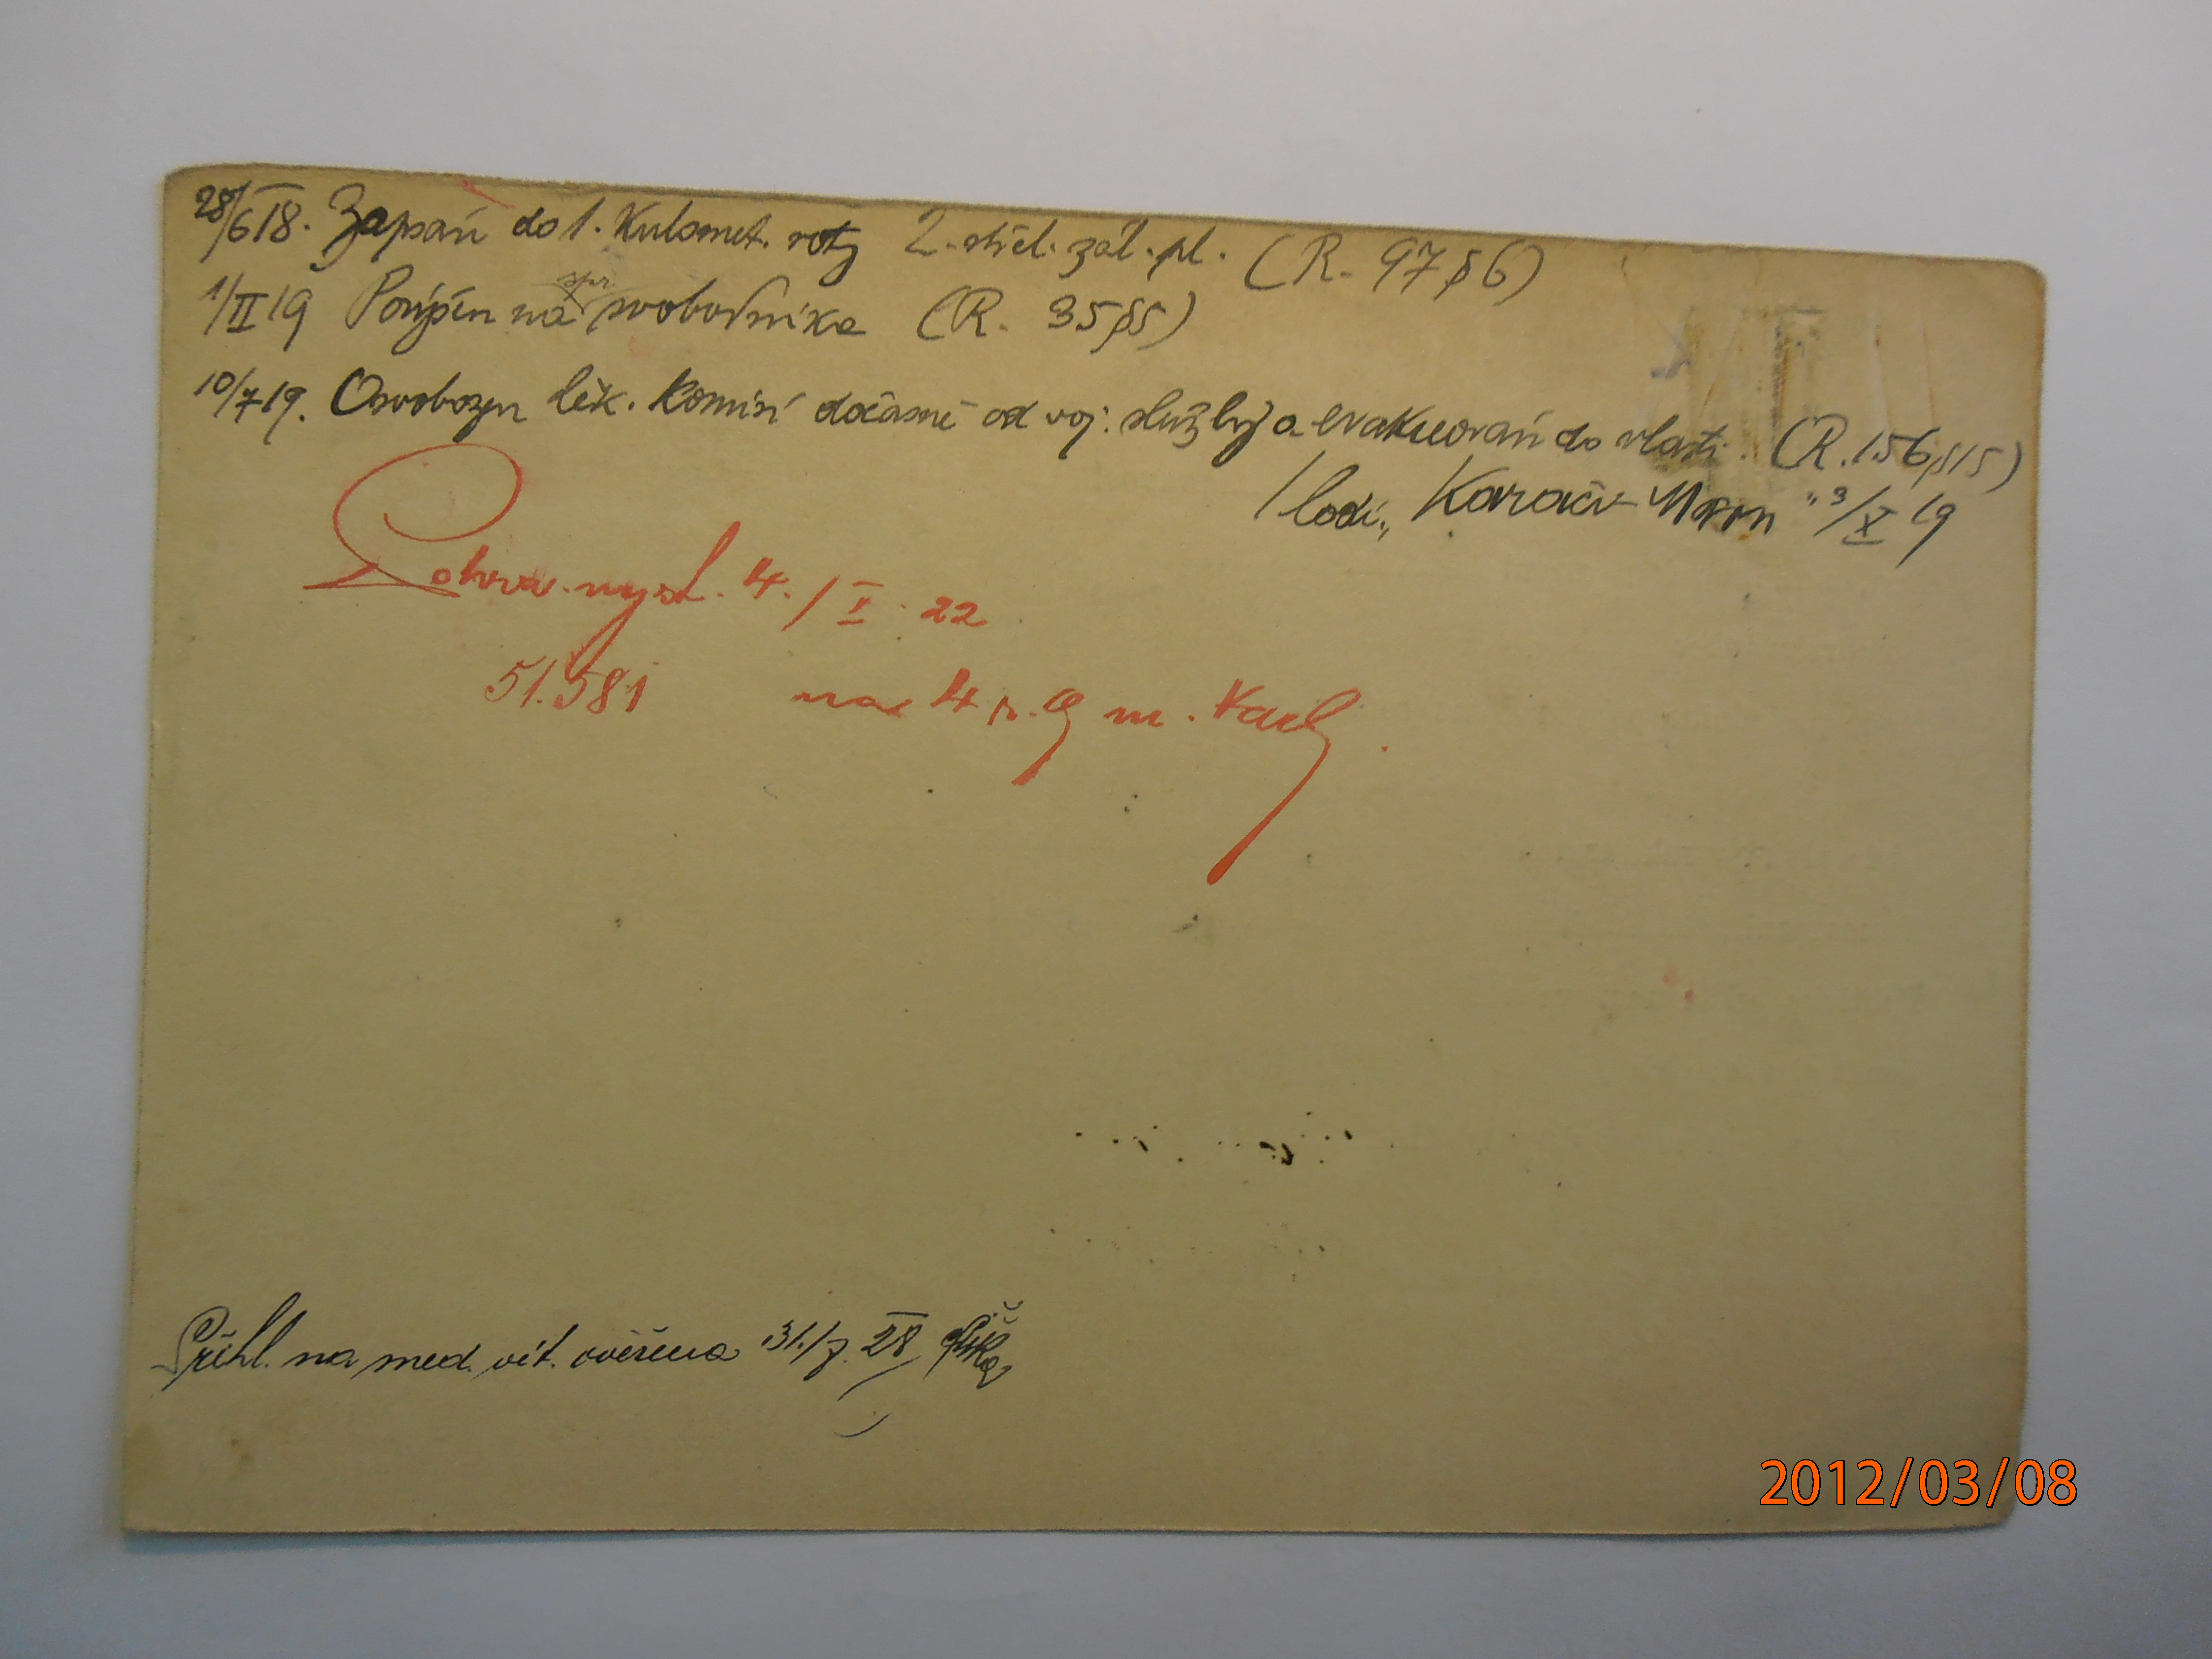 28/6 18. Zapsán do 1. Kulomet. roty 2. střel. zál. pl. (R. 97 § 6)
1/II 19 Povýšen na spr. svobodníka (R. 35 § 5)
10/7 19. Osvobozen lék. komisí dočasně od voj. služby a evakuován do vlasti. (R. 156 § 15)
/lodí „ 3/X 19
Potvrz. vyst. 4./I. 22
51.581 na 4 r. 9 m.
Přihl. na med. vít. ověřena 31./7. 28
2012/03/08